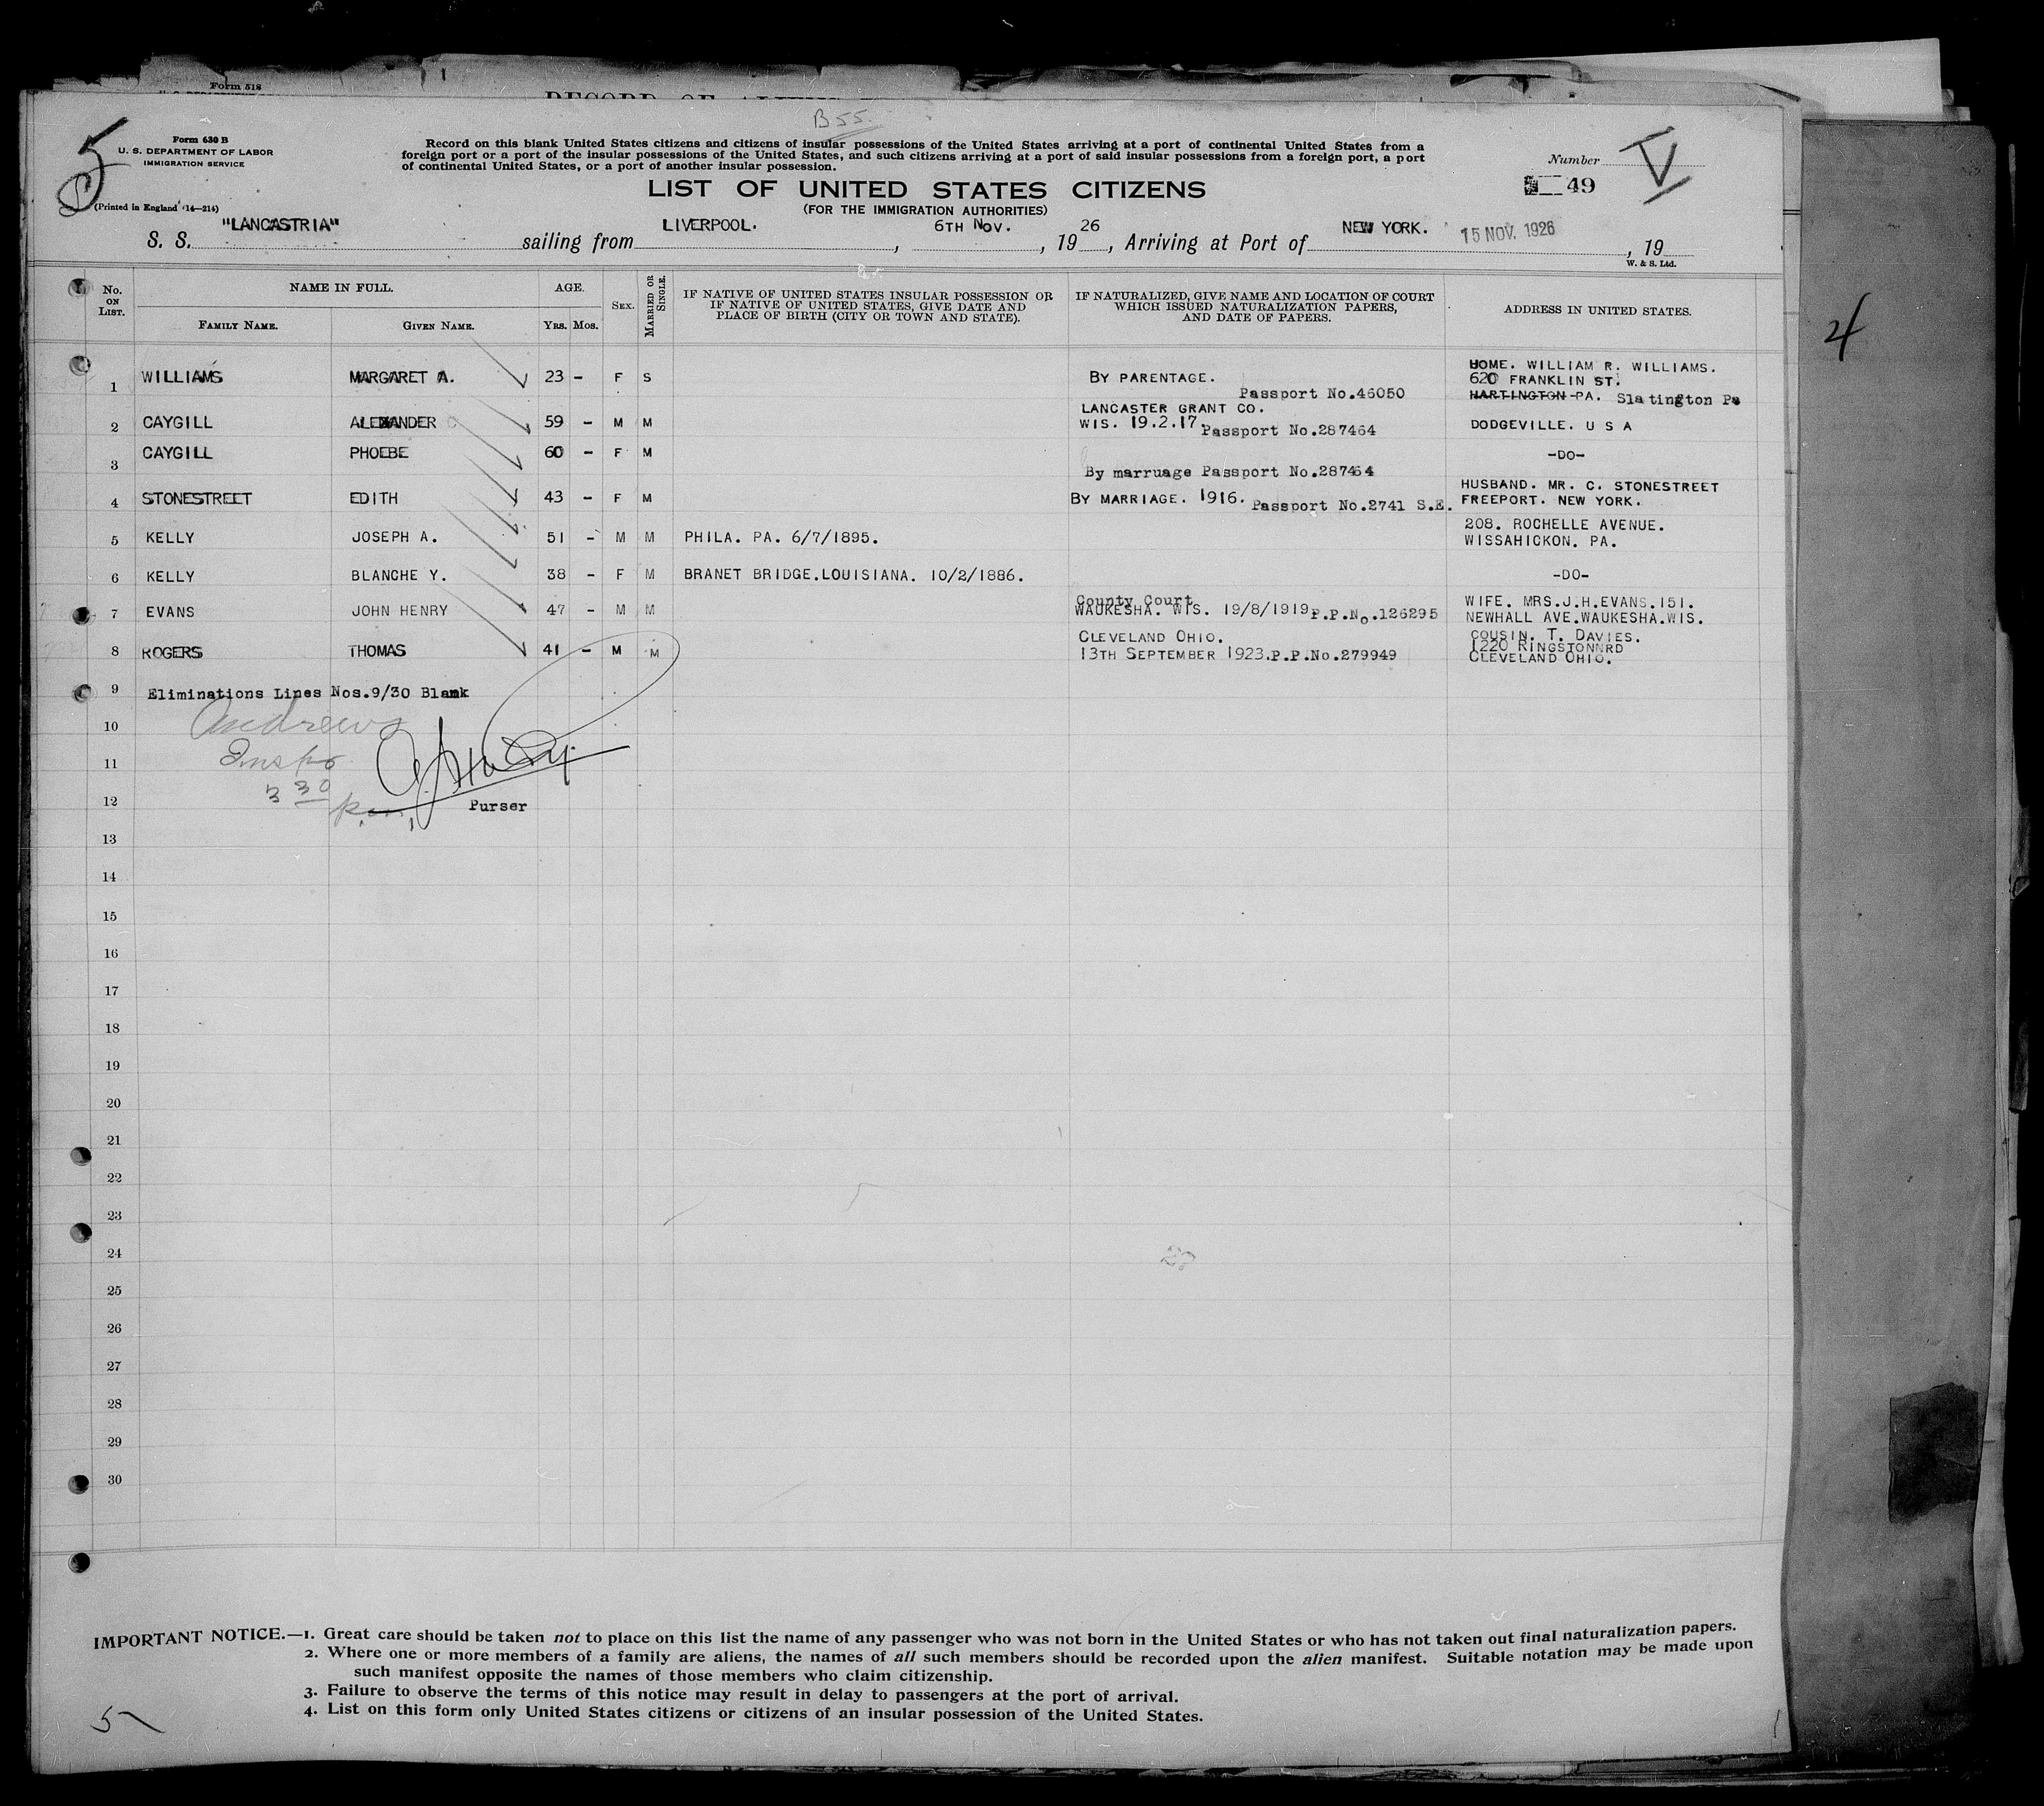 Form 518
B 55.
5
Form 630 B
U. S. DEPARTMENT OF LABOR
IMMIGRATION SERVICE
(Printed in England '14—214)
Record on this blank United States citizens and citizens of insular possessions of the United States arriving at a port of continental United States from a
foreign port or a port of the insular possessions of the United States, and such citizens arriving at a port of said insular possessions from a foreign port, a port
of continental United States, or a port of another insular possession.
Number V
49
LIST OF UNITED STATES CITIZENS
(FOR THE IMMIGRATION AUTHORITIES)
S. S. "LANCASTRIA" sailing from LIVERPOOL. , 6TH NOV. , 19 26 , Arriving at Port of NEW YORK. 15 NOV. 1926 , 19
W. & S. Ltd.
No. ON LIST. NAME IN FULL. AGE. SEX. MARRIED OR SINGLE. IF NATIVE OF UNITED STATES INSULAR POSSESSION OR IF NATIVE OF UNITED STATES, GIVE DATE AND PLACE OF BIRTH (CITY OR TOWN AND STATE). IF NATURALIZED, GIVE NAME AND LOCATION OF COURT WHICH ISSUED NATURALIZATION PAPERS, AND DATE OF PAPERS. ADDRESS IN UNITED STATES.
FAMILY NAME. GIVEN NAME. YRS. MOS.
1 WILLIAMS MARGARET A. 23 - F S BY PARENTAGE. Passport No.46050 HOME. WILLIAM R. WILLIAMS. 620 FRANKLIN ST. HARTINGTON PA. Slatington Pa
2 CAYGILL ALEXANDER C 59 - M M LANCASTER GRANT CO. WIS. 19.2.17. Passport No.287464 DODGEVILLE. U S A
3 CAYGILL PHOEBE 60 - F M By marruage Passport No.287464 -DO-
4 STONESTREET EDITH 43 - F M BY MARRIAGE. 1916. Passport No.2741 S.E. HUSBAND. MR. C. STONESTREET FREEPORT. NEW YORK.
5 KELLY JOSEPH A. 51 - M M PHILA. PA. 6/7/1895. 208. ROCHELLE AVENUE. WISSAHICKON. PA.
6 KELLY BLANCHE Y. 38 - F M BRANET BRIDGE.LOUISIANA. 10/2/1886. -DO-
7 EVANS JOHN HENRY 47 - M M County Court WAUKESHA. WIS. 19/8/1919 P.P.No.126295 WIFE. MRS.J.H.EVANS.151. NEWHALL AVE.WAUKESHA.WIS.
8 ROGERS THOMAS 41 - M M CLEVELAND OHIO. 13TH SEPTEMBER 1923.P.P.No.279949 COUSIN. T. DAVIES. 1220 KINGSTONNRD CLEVELAND OHIO.
9 Eliminations Lines Nos.9/30 Blank
10 Andrews
11 Inspr
12 3 30 p.m. Purser
13
14
15
16
17
18
19
20
21
22
23
24
25
26
27
28
29
30
4
IMPORTANT NOTICE.—1. Great care should be taken not to place on this list the name of any passenger who was not born in the United States or who has not taken out final naturalization papers.
2. Where one or more members of a family are aliens, the names of all such members should be recorded upon the alien manifest. Suitable notation may be made upon
such manifest opposite the names of those members who claim citizenship.
3. Failure to observe the terms of this notice may result in delay to passengers at the port of arrival.
4. List on this form only United States citizens or citizens of an insular possession of the United States.
5